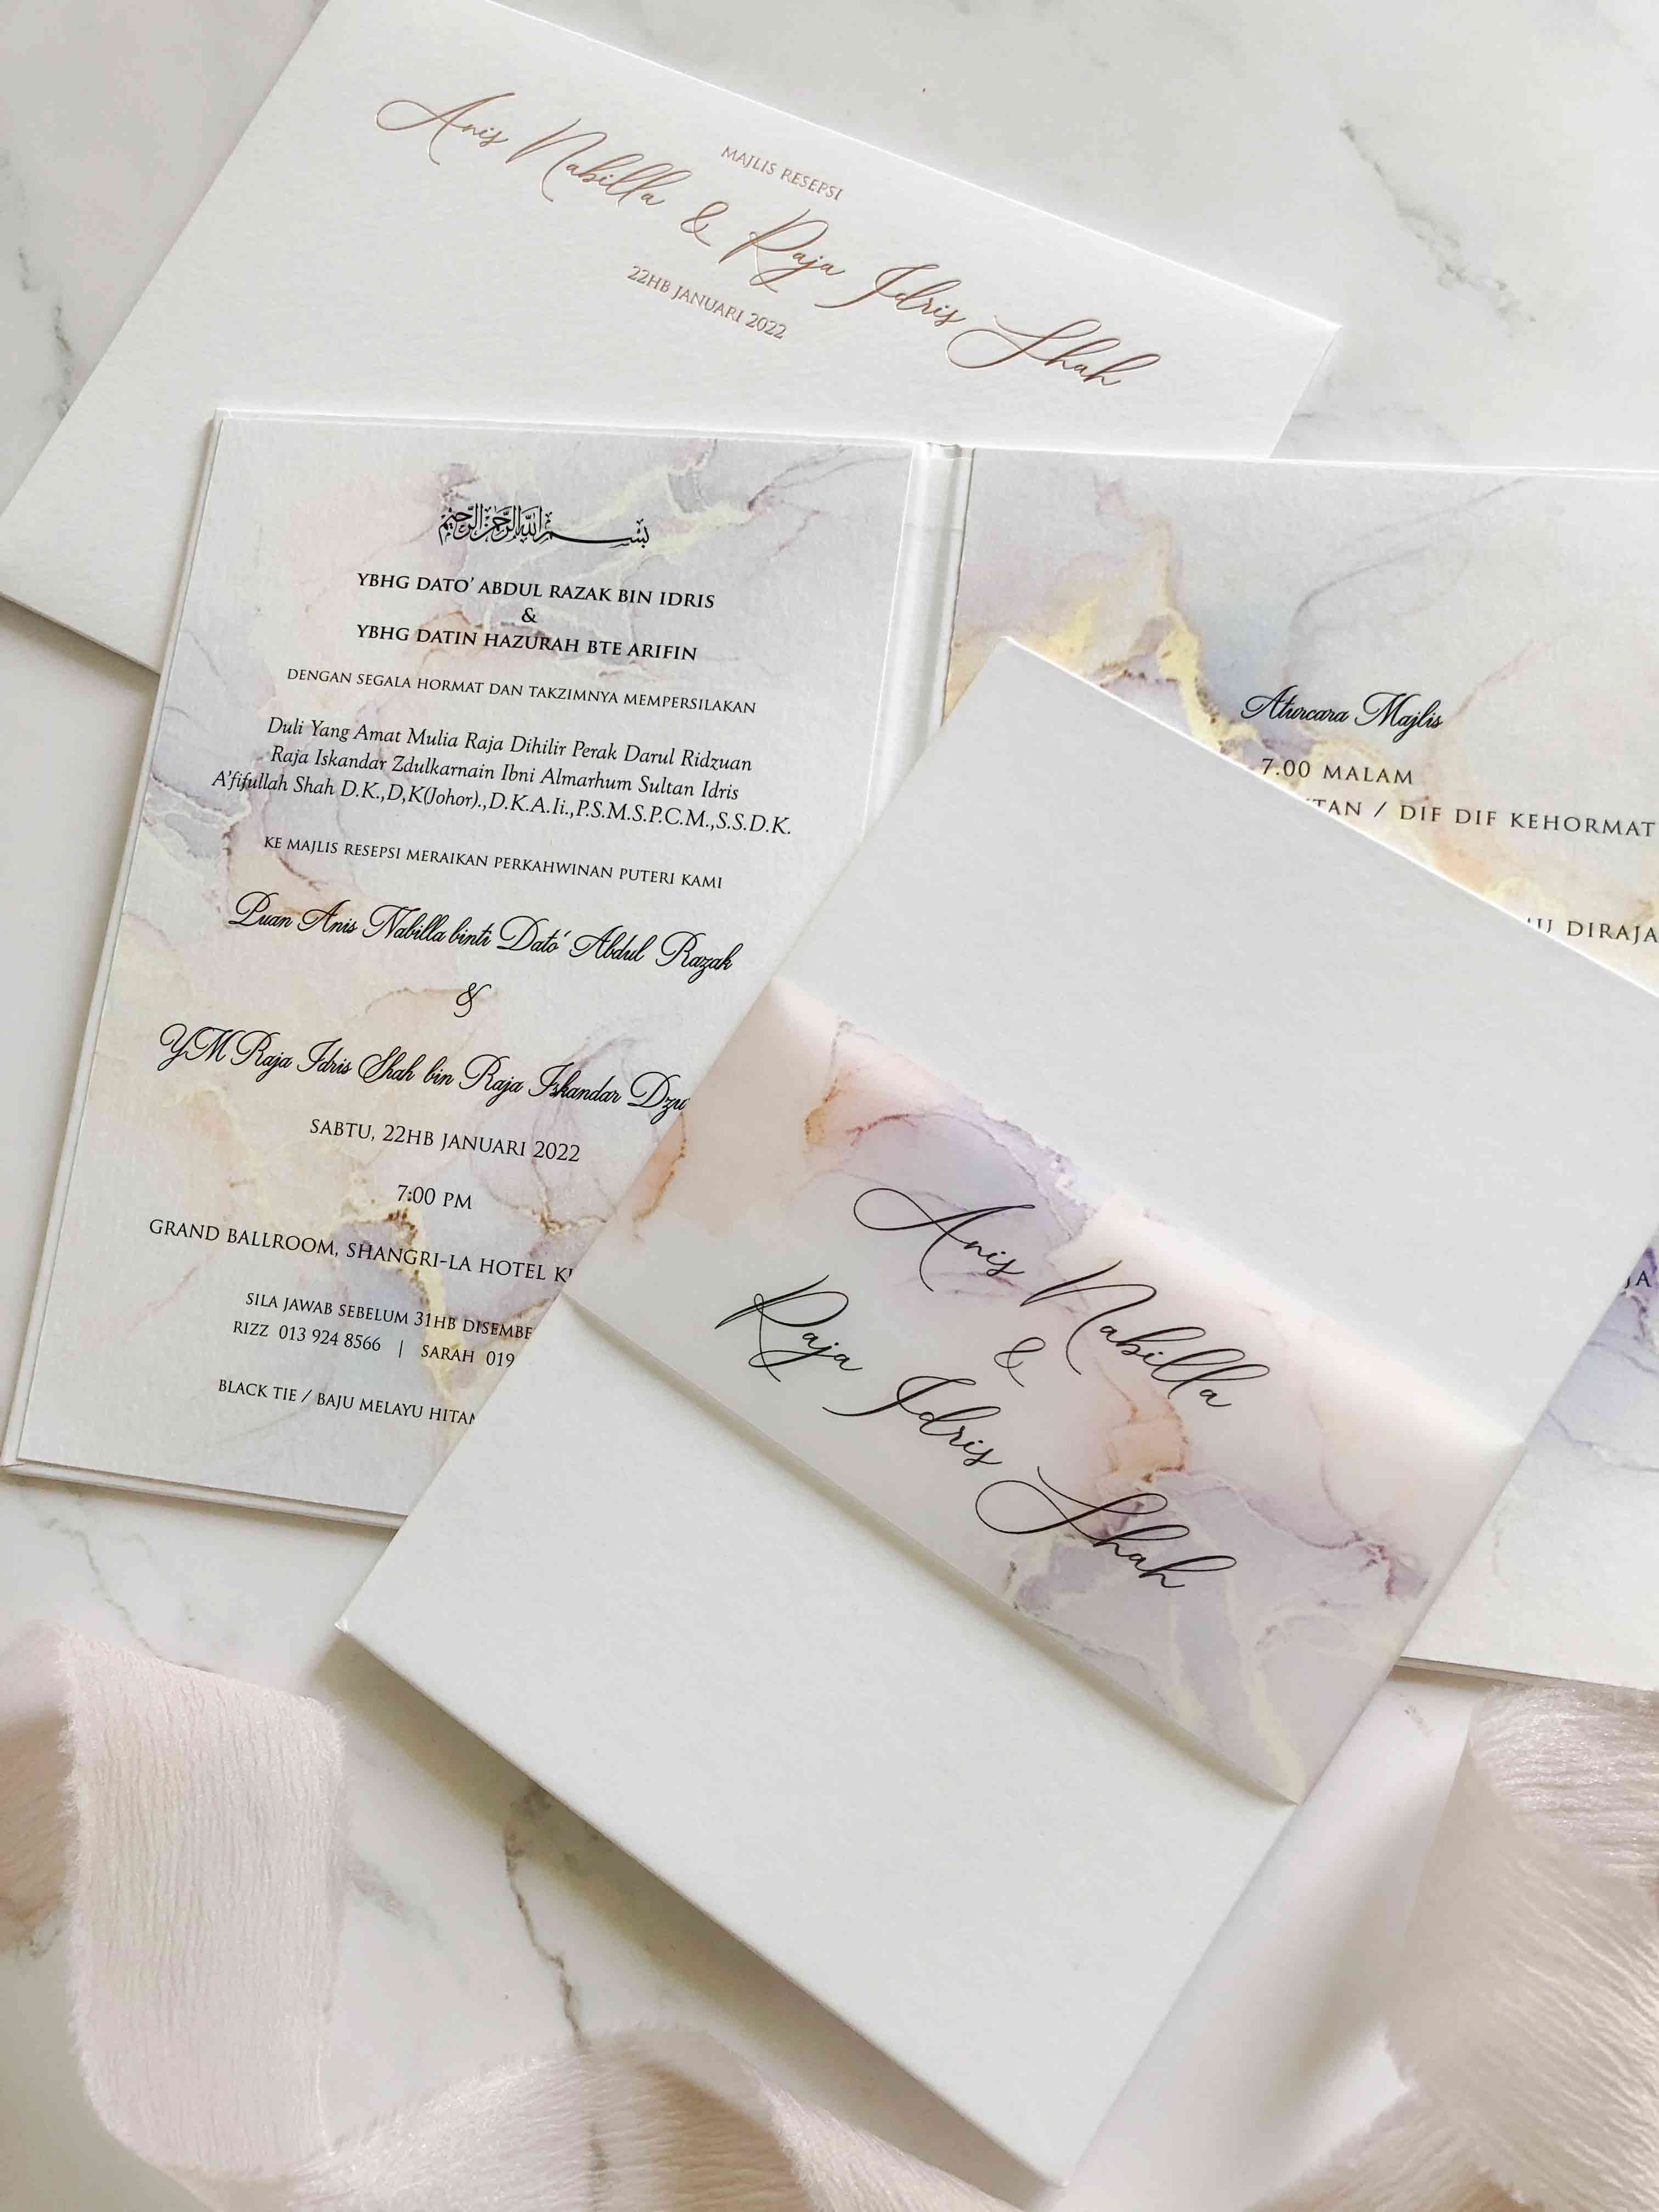 MAJLIS RESEPSI
Anis Nabilla & Raja Idris Shah
22HB JANUARI 2022
بسم الله الرحمن الرحيم
YBHG DATO' ABDUL RAZAK BIN IDRIS
&
YBHG DATIN HAZURAH BTE ARIFIN
DENGAN SEGALA HORMAT DAN TAKZIMNYA MEMPERSILAKAN
Duli Yang Amat Mulia Raja Dihilir Perak Darul Ridzuan
Raja Iskandar Zdulkarnain Ibni Almarhum Sultan Idris
A'fifullah Shah D.K.,D,K(Johor).,D.K.A.Ii.,P.S.M.S.P.C.M.,S.S.D.K.
KE MAJLIS RESEPSI MERAIKAN PERKAHWINAN PUTERI KAMI
Puan Anis Nabilla binti Dato' Abdul Razak
&
YM Raja Idris Shah bin Raja Iskandar
SABTU, 22HB JANUARI 2022
7:00 PM
GRAND BALLROOM, SHANGRI-LA HOTEL
SILA JAWAB SEBELUM 31HB
RIZZ 013 924 8566 | SARAH 019
BLACK TIE / BAJU MELAYU
Aturcara Majlis
7.00 MALAM
/ DIF DIF
DIRAJA
Anis Nabilla
&
Raja Idris Shah